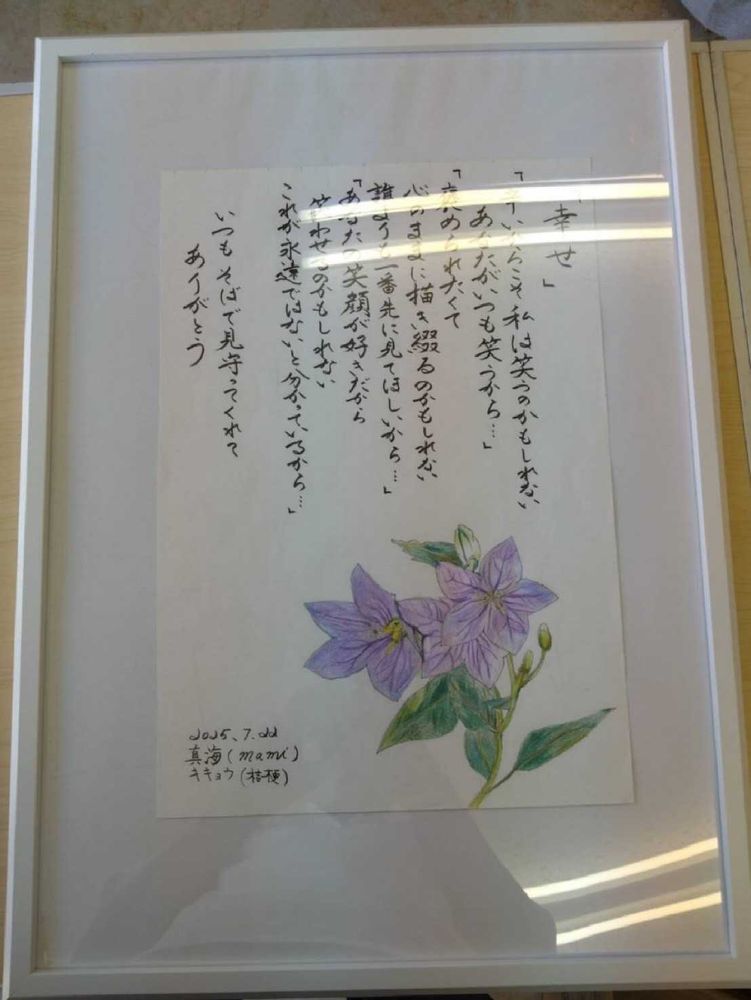 「幸せ」
「辛いからこそ私は笑うのかもしれない
あなたがいつも笑うから…」
「褒められたくて
心のままに描き綴るのかもしれない
誰よりも一番先に見てほしいから…」
「あなたの笑顔が好きだから
笑わせるのかもしれない
これが永遠ではないと分かっているから…」
いつもそばで見守ってくれて
ありがとう
2025.7.22
真海(mami)
キキョウ(桔梗)